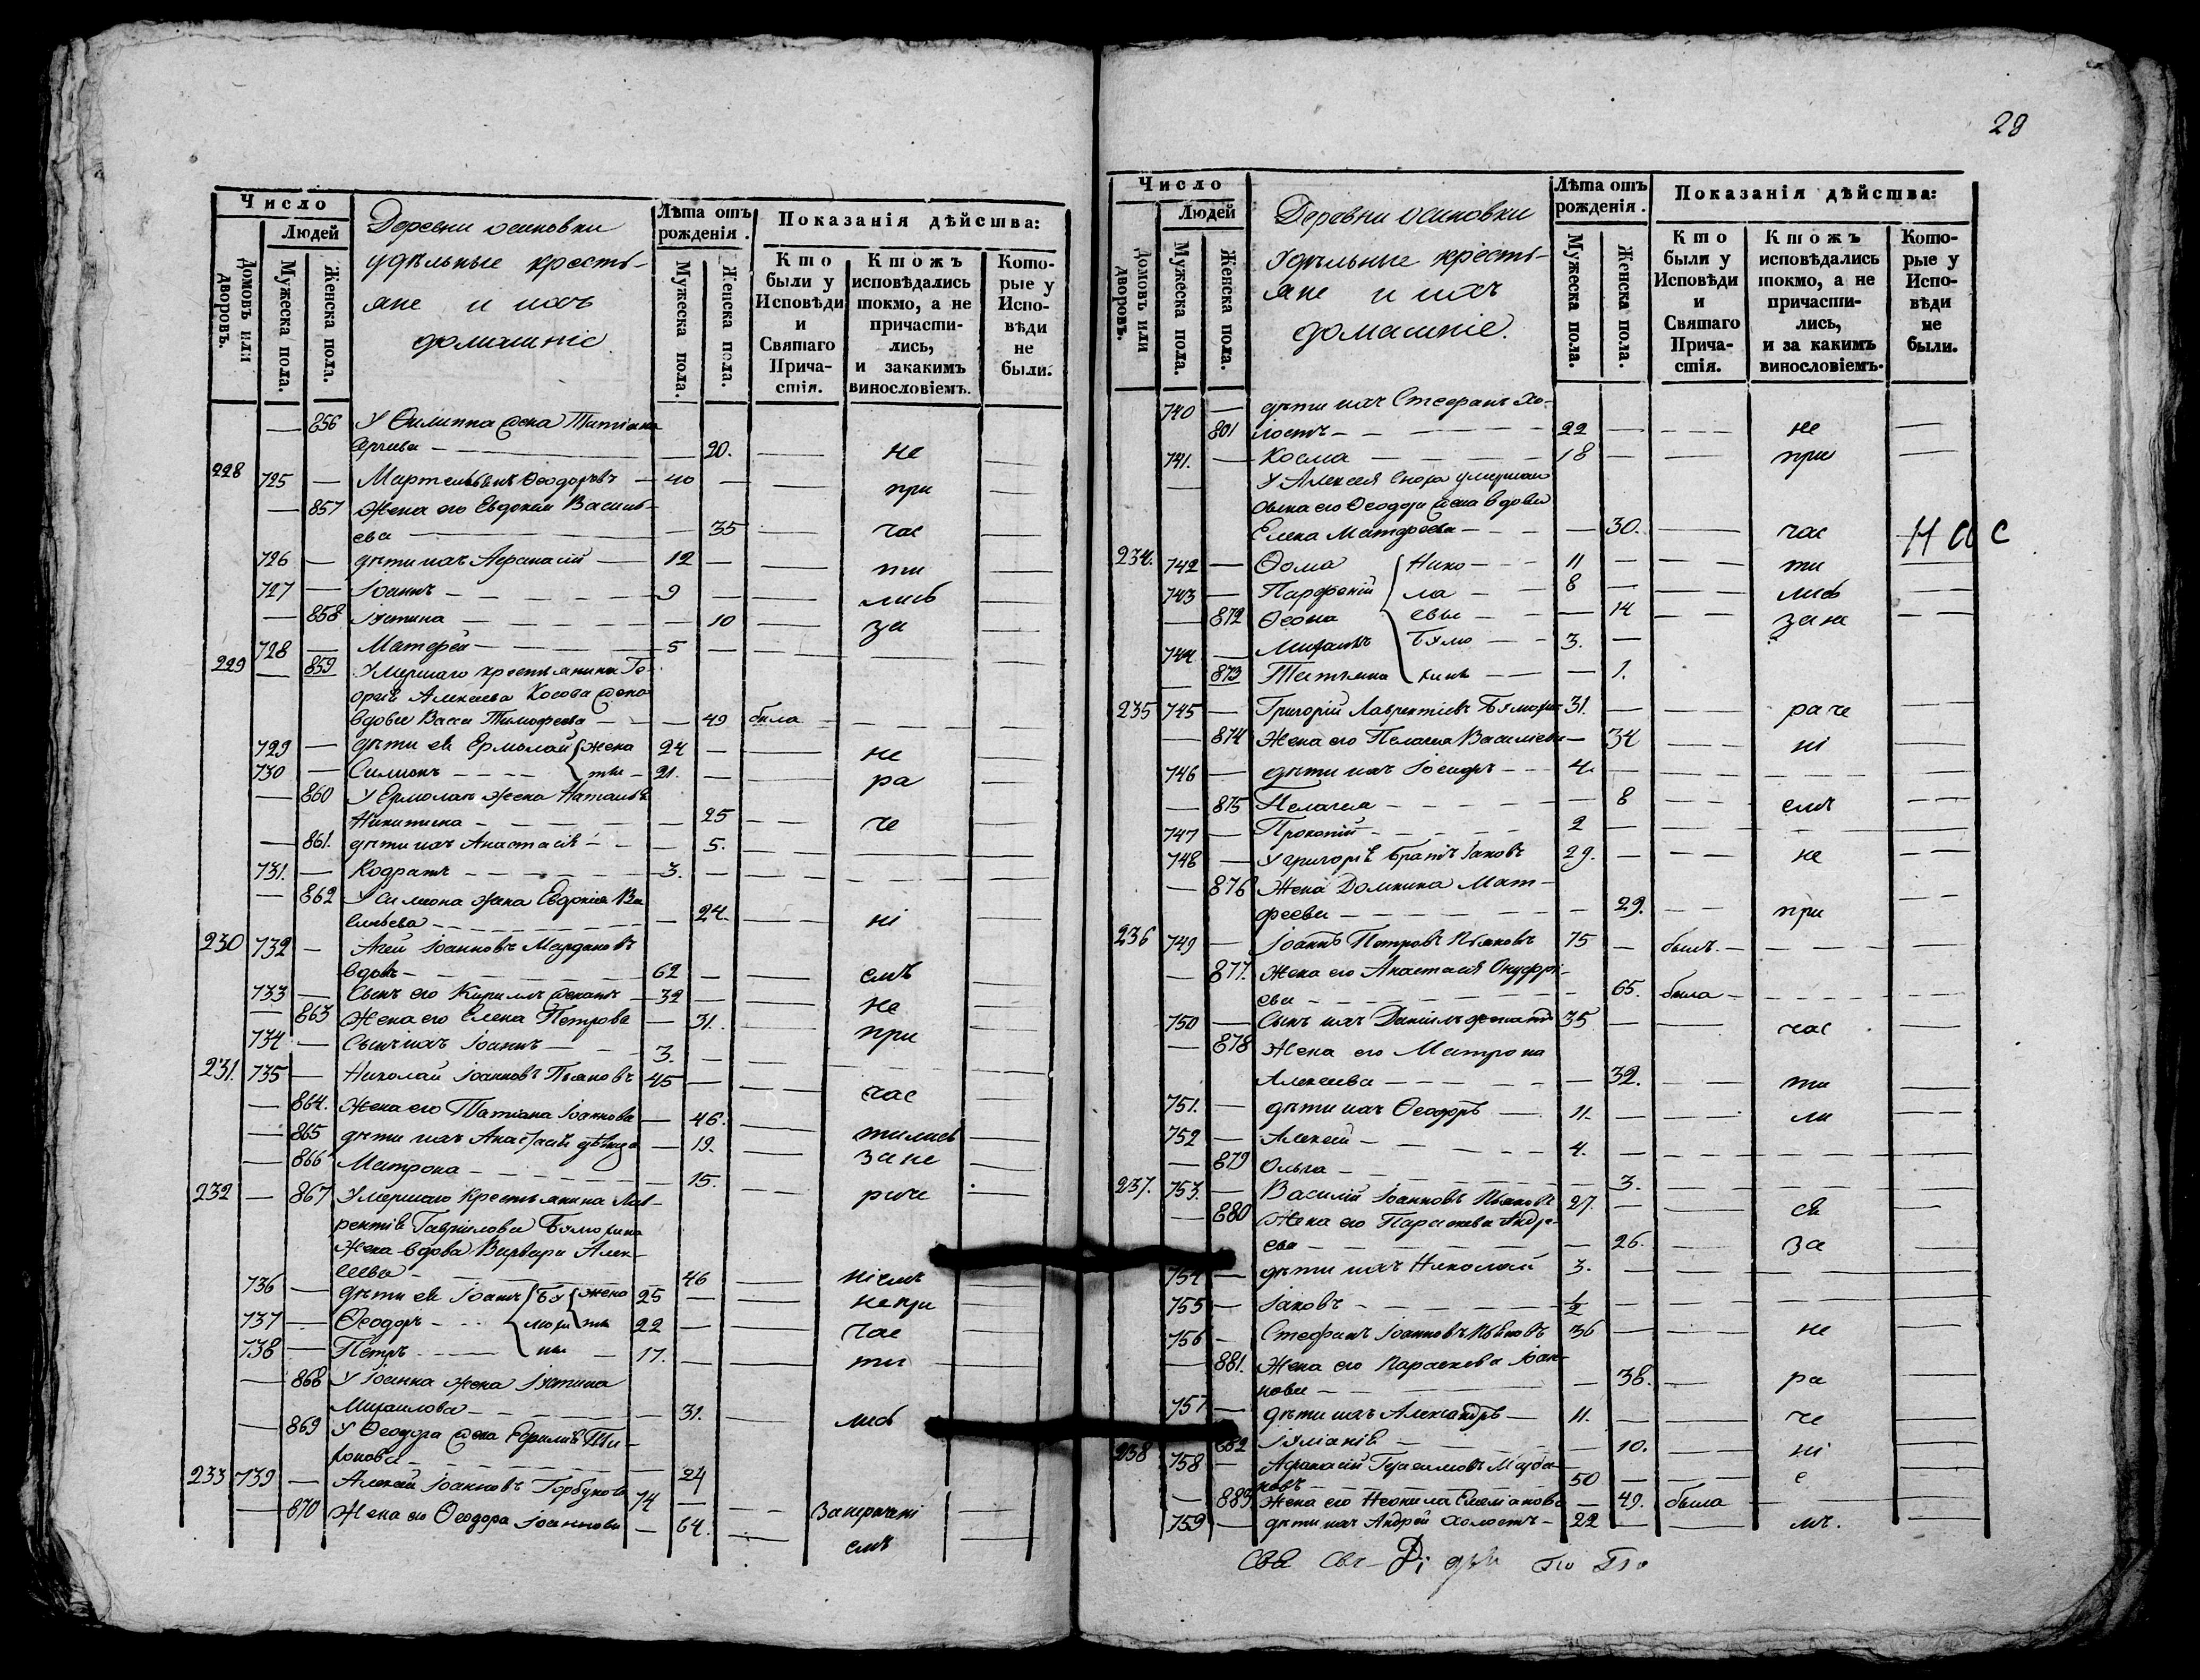 Число
Людей
Домовъ или дворовъ.
Мужеска пола.
Женска пола.
Деревни осиновки
удѣльные кресть-
яне и ихъ
домашніе.
Лѣта отъ рожденія.
Мужеска пола.
Женска пола.
Показанія дѣйства:
Кто были у Исповѣди и Святаго Причастія.
Ктожъ исповѣдались токмо, а не причастились, и закакимъ винословіемъ.
Которые у Исповѣди не были.
856 У Филиппа жена Татіана
20. не
228 725 Ѳеодоровъ 40 при
857 Жена его Евдокія Василь-
ева 35 час
726 дѣти ихъ Афанасій 12 ти
727 Іоаннъ 9 лись
858 Іустина 10 за
728 Матфей 5
229 859 Умершаго крестьянина
Алексѣева Косова жена
вдова Васса Тимофеева 49 была
729 дѣти ея Ермолай жена 24 не
730 Симионъ ты 21. ра
860 У Ермолая жена Наталья
Никитина 25 че
861. дѣти ихъ Анастасія 5.
731. Кодратъ 3.
862 У Симиона жена Евдокія Ва
сильева 24 ні
230 732 Агей Іоанновъ
вдовъ 62 емъ
733 Сынъ его Кириллъ женатъ 32 не
863 Жена его Елена Петрова 31. при
734 Сынъ ихъ Іоаннъ 3.
231. 735 Николай Іоанновъ Пьяновъ 45 час
864. Жена его Татіана Іоаннова 46. тились
865 дѣти ихъ Анастасія дѣвица 19. за не
866 Матрона 15.
232 867 Умершаго крестьянина Лав- раче
рентія Гаврилова
Жена вдова Варвара Алек-
сеева 46 ніемъ
736 дѣти ея Іоаннъ жена 25 не при
737 Ѳеодоръ ты 22 час
738 Петръ 17. ти
868 У Іоанна жена Іустина
Михаилова 31. лись
869 У Ѳеодора жена
24
233 739 Алексѣй Іоанновъ Горбуновъ 74
870 Жена его Ѳеодора Іоаннова 64. емъ
29
Число
Людей
Домовъ или дворовъ.
Мужеска пола.
Женска пола.
Деревни осиновки
Удѣльные кресть-
яне и ихъ
домашніе.
Лѣта отъ рожденія.
Мужеска пола.
Женска пола.
Показанія дѣйства:
Кто были у Исповѣди и Святаго Причастія.
Ктожъ исповѣдались токмо, а не причастились, и за какимъ винословіемъ.
Которые у Исповѣди не были.
740 дѣти ихъ Стефанъ хо-
801 лостъ 22 не
741. Косма 18 при
У Алексея сноха умершаго
сына его Ѳеодора жена вдова
Елена Матфеева 30. час
234. 742 Ѳома Нико 11 ти
743 Парфеній ла 8 лись
872 евы 14 за не
744 Михаилъ 3.
873 Татьяна 1.
235 745 Григорій Лаврентіевъ 31. раче
874 Жена его Пелагея Васильева 34 ні
746 дѣти ихъ Іосифъ 4
875 Пелагея 8 емъ
747 Прокопій 2
748 У григорія братъ Іаковъ 29. не
876 Жена Домника Мат-
феева 29. при
236 749 Іоаннъ Петровъ Пьяновъ 75 былъ
877. Жена его Анастасія Онуфрі-
ева 65. была
750 Сынъ ихъ Даніилъ женатъ 35 час
878 Жена его Матрона
Алексеева 32. ти
751. дѣти ихъ Ѳеодоръ 11. ли
752 Алексѣй 4.
879 Ольга 3.
237. 753. Василій Іоанновъ Пьяновъ 27. ся
880 Жена его Параскева Андре-
ева 26. за
754 дѣти ихъ Николай 3.
755 Іаковъ 1/2
756 Стефанъ Іоанновъ Пьяновъ 36 не
881. Жена его Параскева Іоан-
нова 38. ра
757 дѣти ихъ Александръ 11. че
882 Іуліанія 10. ні
238 758 Афанасій Герасимовъ
50 е
883 Жена его Неонила Емельянова 49. была
759 дѣти ихъ Андрей холостъ 22 мъ.